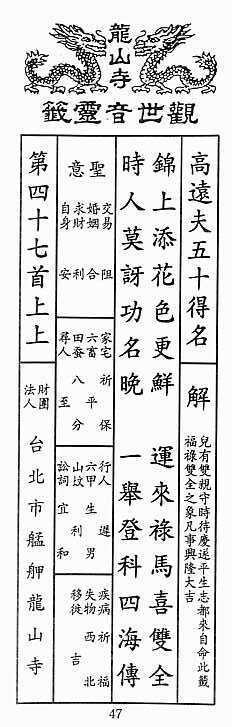 龍山寺
觀世音靈籤
高遠夫五十得名
解
兒有雙親守時待慶遲平生志都來自命此籤
福祿雙全之象凡事興隆大吉
錦上添花色更鮮 運來祿馬喜雙全
時人莫訝功名晚 一舉登科四海傳
聖意
交易 阻
婚姻 合
求財 利
自身 安
家宅 祈保
六畜 平
田蚕 八分
尋人 至
行人 遲
六甲 生男
山墳 利
訟詞 宜和
疾病 祈福
失物 西北
移徙 吉
第四十七首上上
財團法人
台北市艋舺龍山寺
47